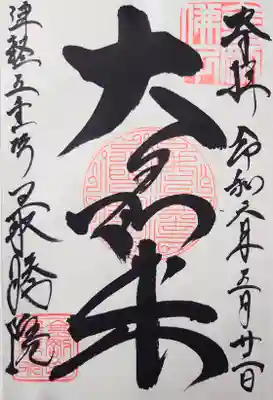 奉拝 令和六年五月廿一日
大日如来
津軽五重塔 最勝院